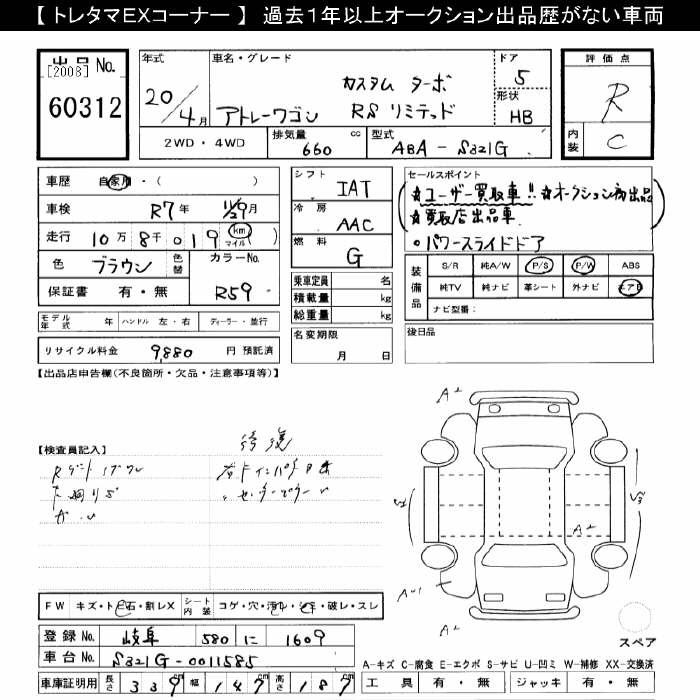 【 トレタマEXコーナー 】 過去１年以上オークション出品歴がない車両
出品 No.
[2008]
60312
年式
20/4月
車名・グレード
アトレーワゴン
カスタム ターボ
RS リミテッド
ドア
5
形状
HB
2WD・4WD
排気量
660 cc
型式
ABA-S321G
評価点
R
内装
C
車歴 自家用・( )
車検 R7年 11/29月
走行 10万8千019 km マイル
色 ブラウン 色替 カラーNo. R59
保証書 有・無
モデル年式 年 ハンドル 左・右 ディーラー・並行
リサイクル料金 9,880 円 預託済
シフト IAT
冷房 AAC
燃料 G
乗車定員 名
積載量 kg
総重量 kg
名変期限
月 日
セールスポイント
☆ユーザー買取車!! ☆オークション初出品
☆買取店出品車
○パワースライドドア
装備品
S/R 純A/W P/S P/W ABS
純TV 純ナビ 革シート 外ナビ エアB
ナビ型番：
後日品
【出品店申告欄(不良箇所・欠品・注意事項等)】
【検査員記入】
修復
A2
A2
A2
A2
FW キズ・トビ石・割レX シート内装 コゲ・穴・汚レ・シミ・破レ・スレ
登録 No. 岐阜 580 に 1609
車台 No. S321G-0011585
車庫証明用 長さ 339cm 幅 147cm 高さ 187cm
スペア
A-キズ C-腐食 E-エクボ S-サビ U-凹ミ W-補修 XX-交換済
工具 有・無 ジャッキ 有・無